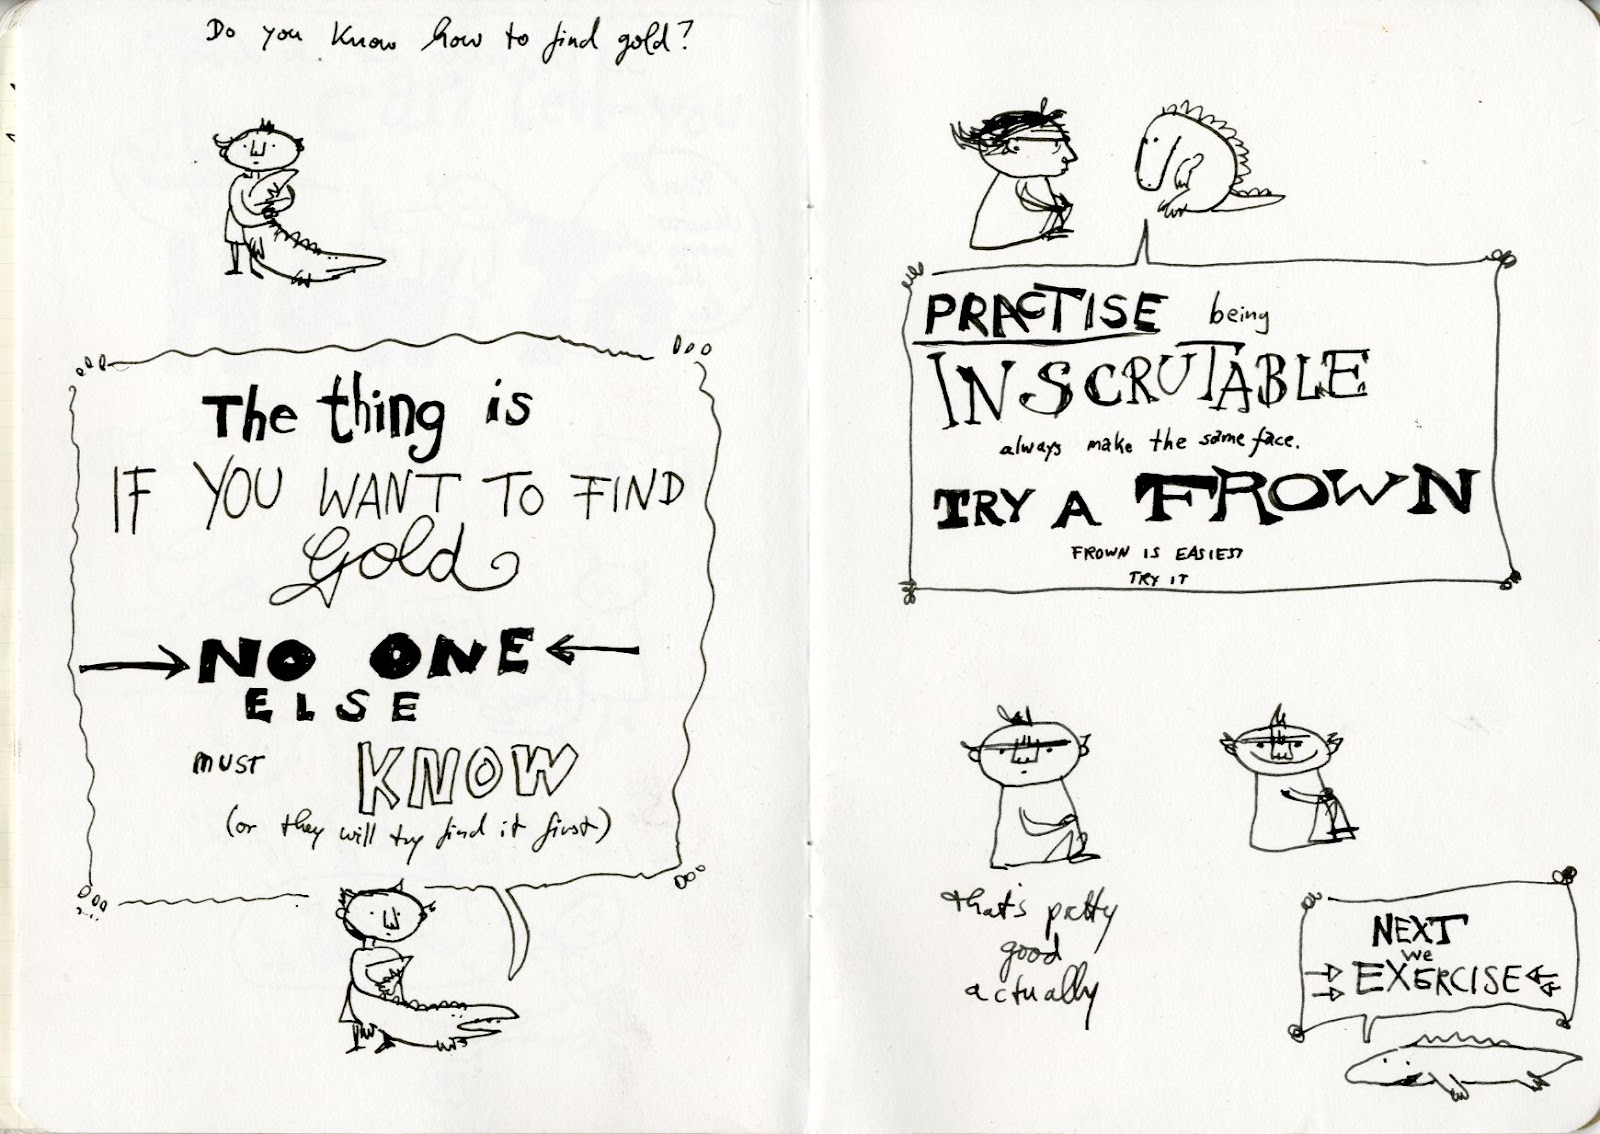 Do you know how to find gold?
The thing is
IF YOU WANT TO FIND
gold
NO ONE
ELSE
MUST KNOW
(or they will try find it first)
PRACTISE being
INSCRUTABLE
always make the same face.
TRY A FROWN
FROWN IS EASIEST
TRY IT
that's pretty
good
actually
NEXT
we
EXERCISE